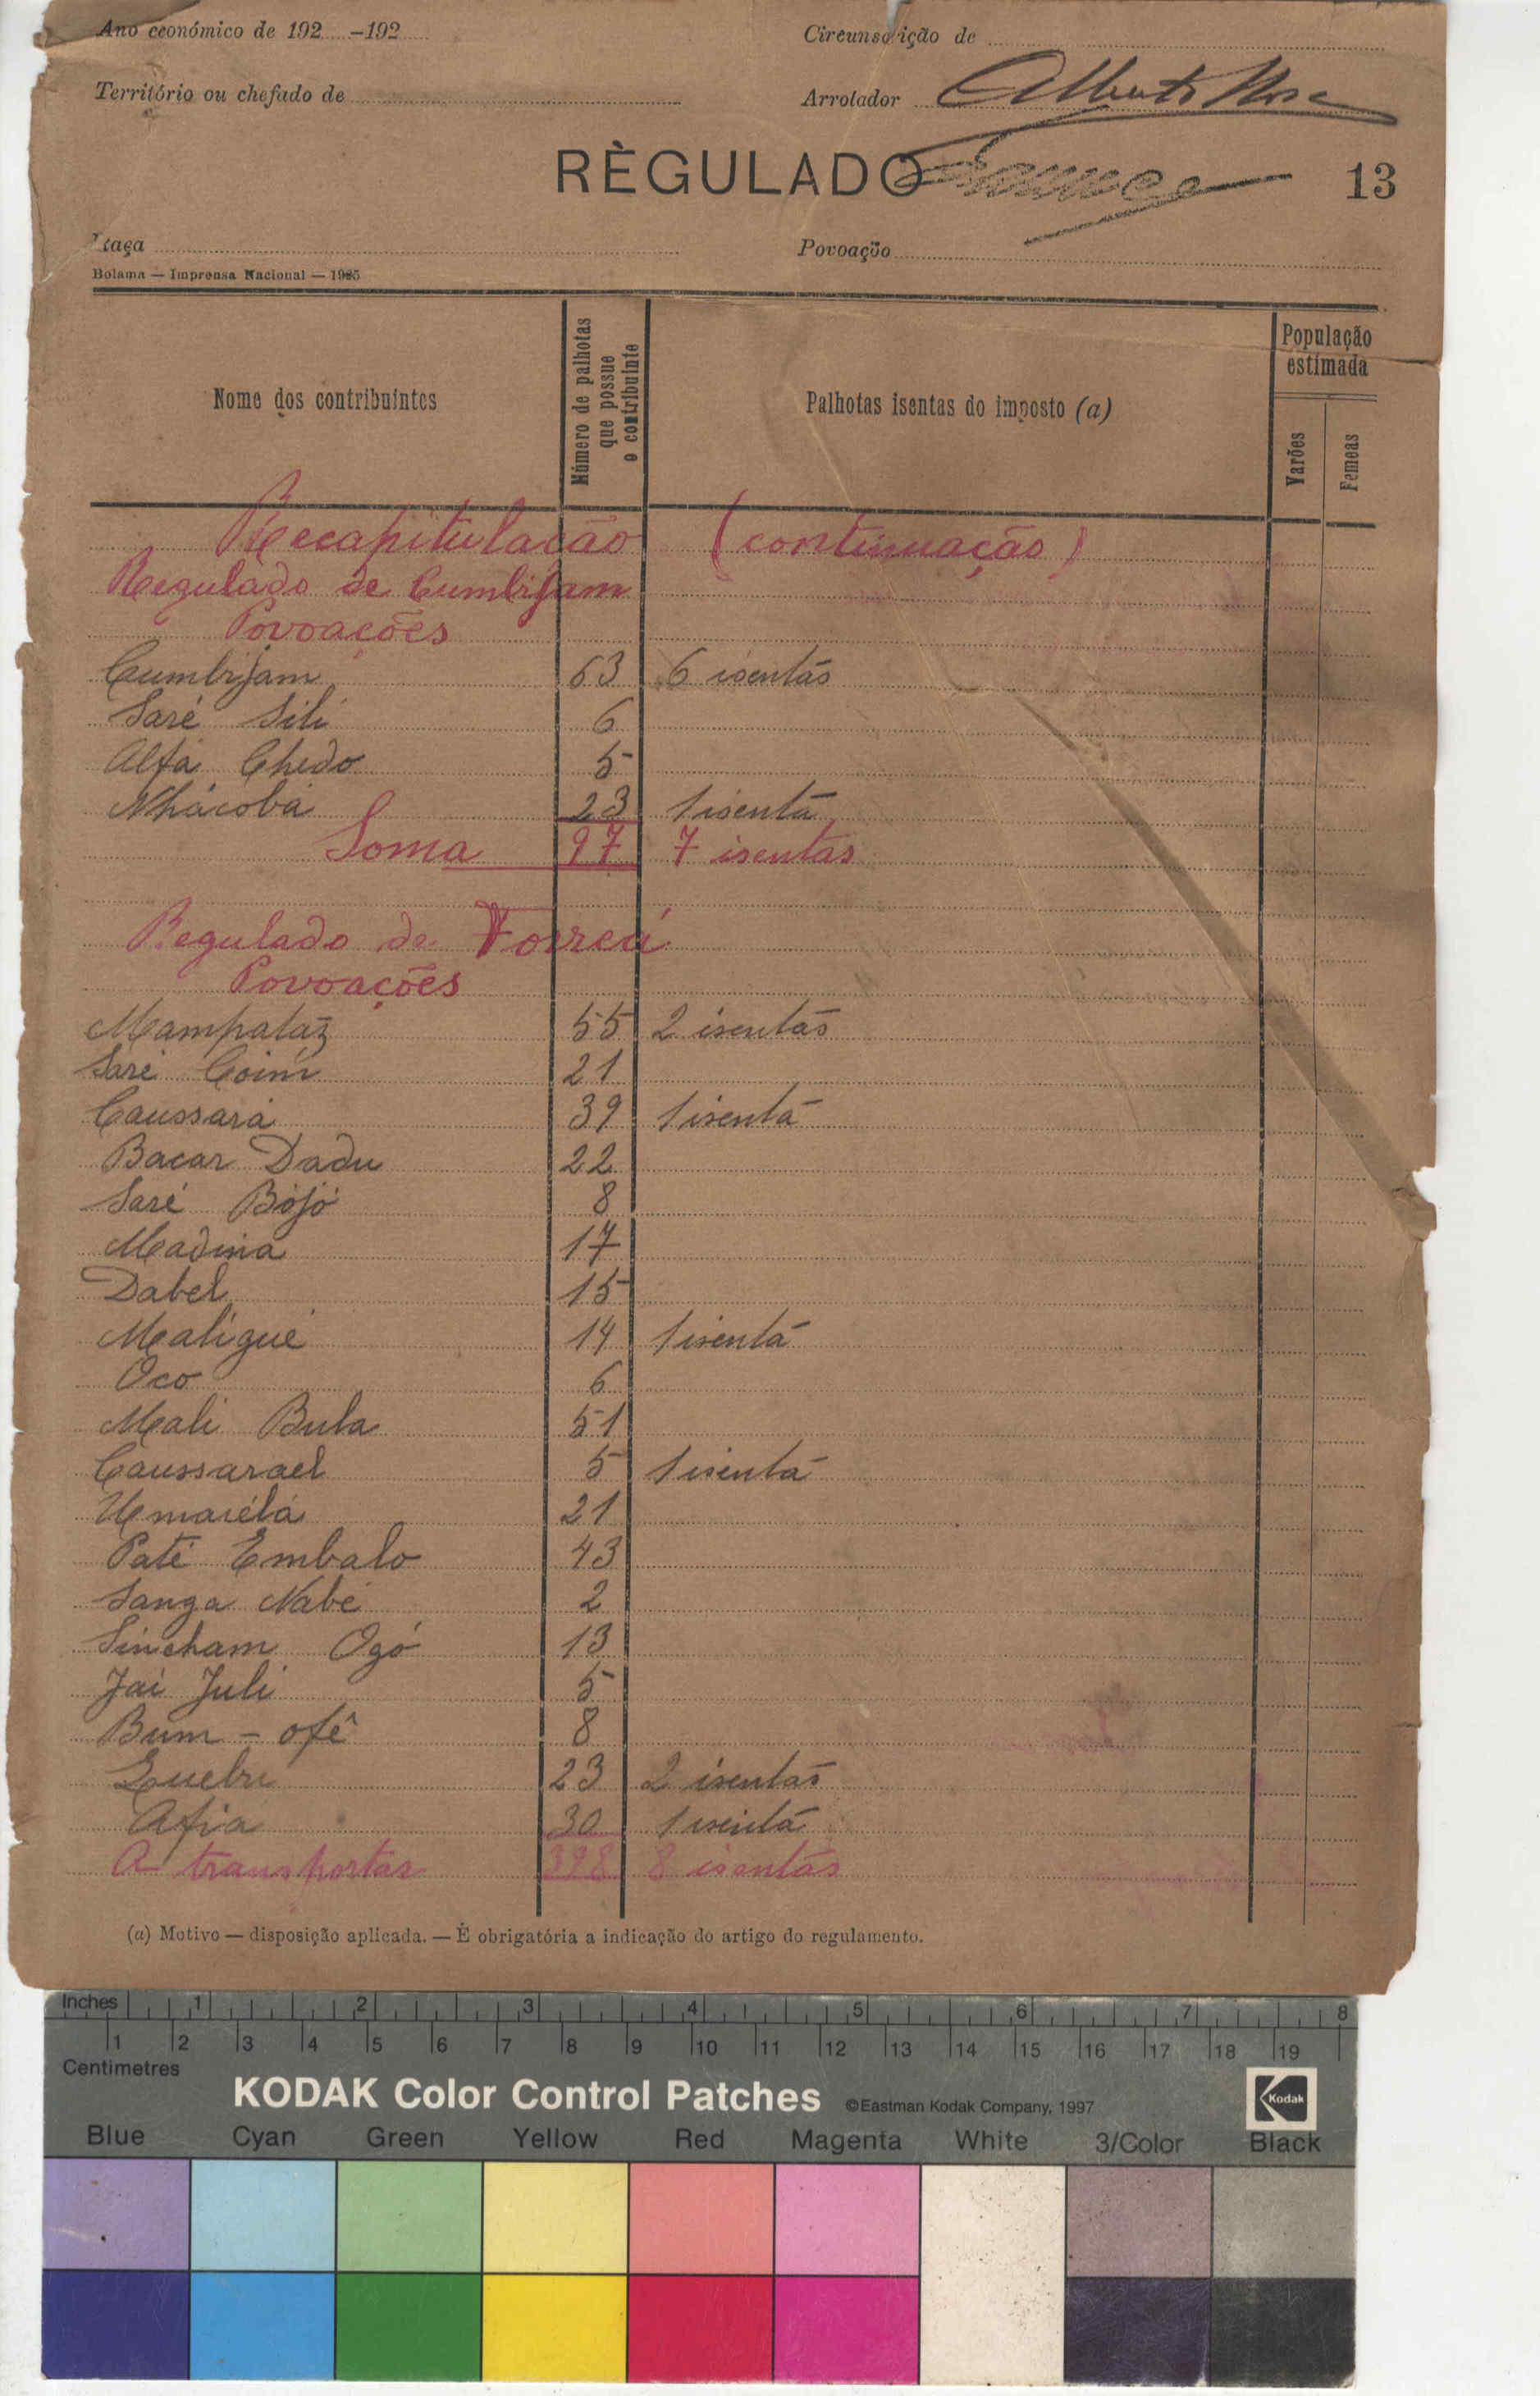 Ano económico de 192 -192
Circunscrição de
Território ou chefado de
Arrolador Alberto
RÈGULADO
13
Raça
Povoação
Bolama — Imprensa Nacional — 1925
Nome dos contribuintes
Número de palhotas que possue o contribuinte
Palhotas isentas do imposto (a)
População estimada
Varões
Femeas
Recapitulação (continuação)
Regulado de Cumbijam
Povoações
Cumbijam 63 6 isentás
Saré Sili 6
Alfá Chedo 5
Nhácobá 23 1 isentá
Soma 97 7 isentas
Regulado de Forreá
Povoações
Mampatáz 55 2 isentás
Saré Coim 21
Caussará 39 1 isentá
Bacar Dadu 22
Saré Bójó 8
Madina 17
Dabel 15
Maligué 14 1 isentá
Oco 6
Mali Bula 51
Caussarael 5 1 isentá
Umaiélá 21
Paté Embalo 43
Sanga Nabé 2
Sincham Ogó 13
Jai Juli 5
Bum - ofê 8
Quebu 23 2 isentás
Afia 30 1 isentá
A transportar 398 8 isentás
(a) Motivo — disposição aplicada. — É obrigatória a indicação do artigo do regulamento.
Inches 1 2 3 4 5 6 7 8
1 2 3 4 5 6 7 8 9 10 11 12 13 14 15 16 17 18 19
Centimetres
KODAK Color Control Patches ©Eastman Kodak Company, 1997 Kodak
Blue Cyan Green Yellow Red Magenta White 3/Color Black